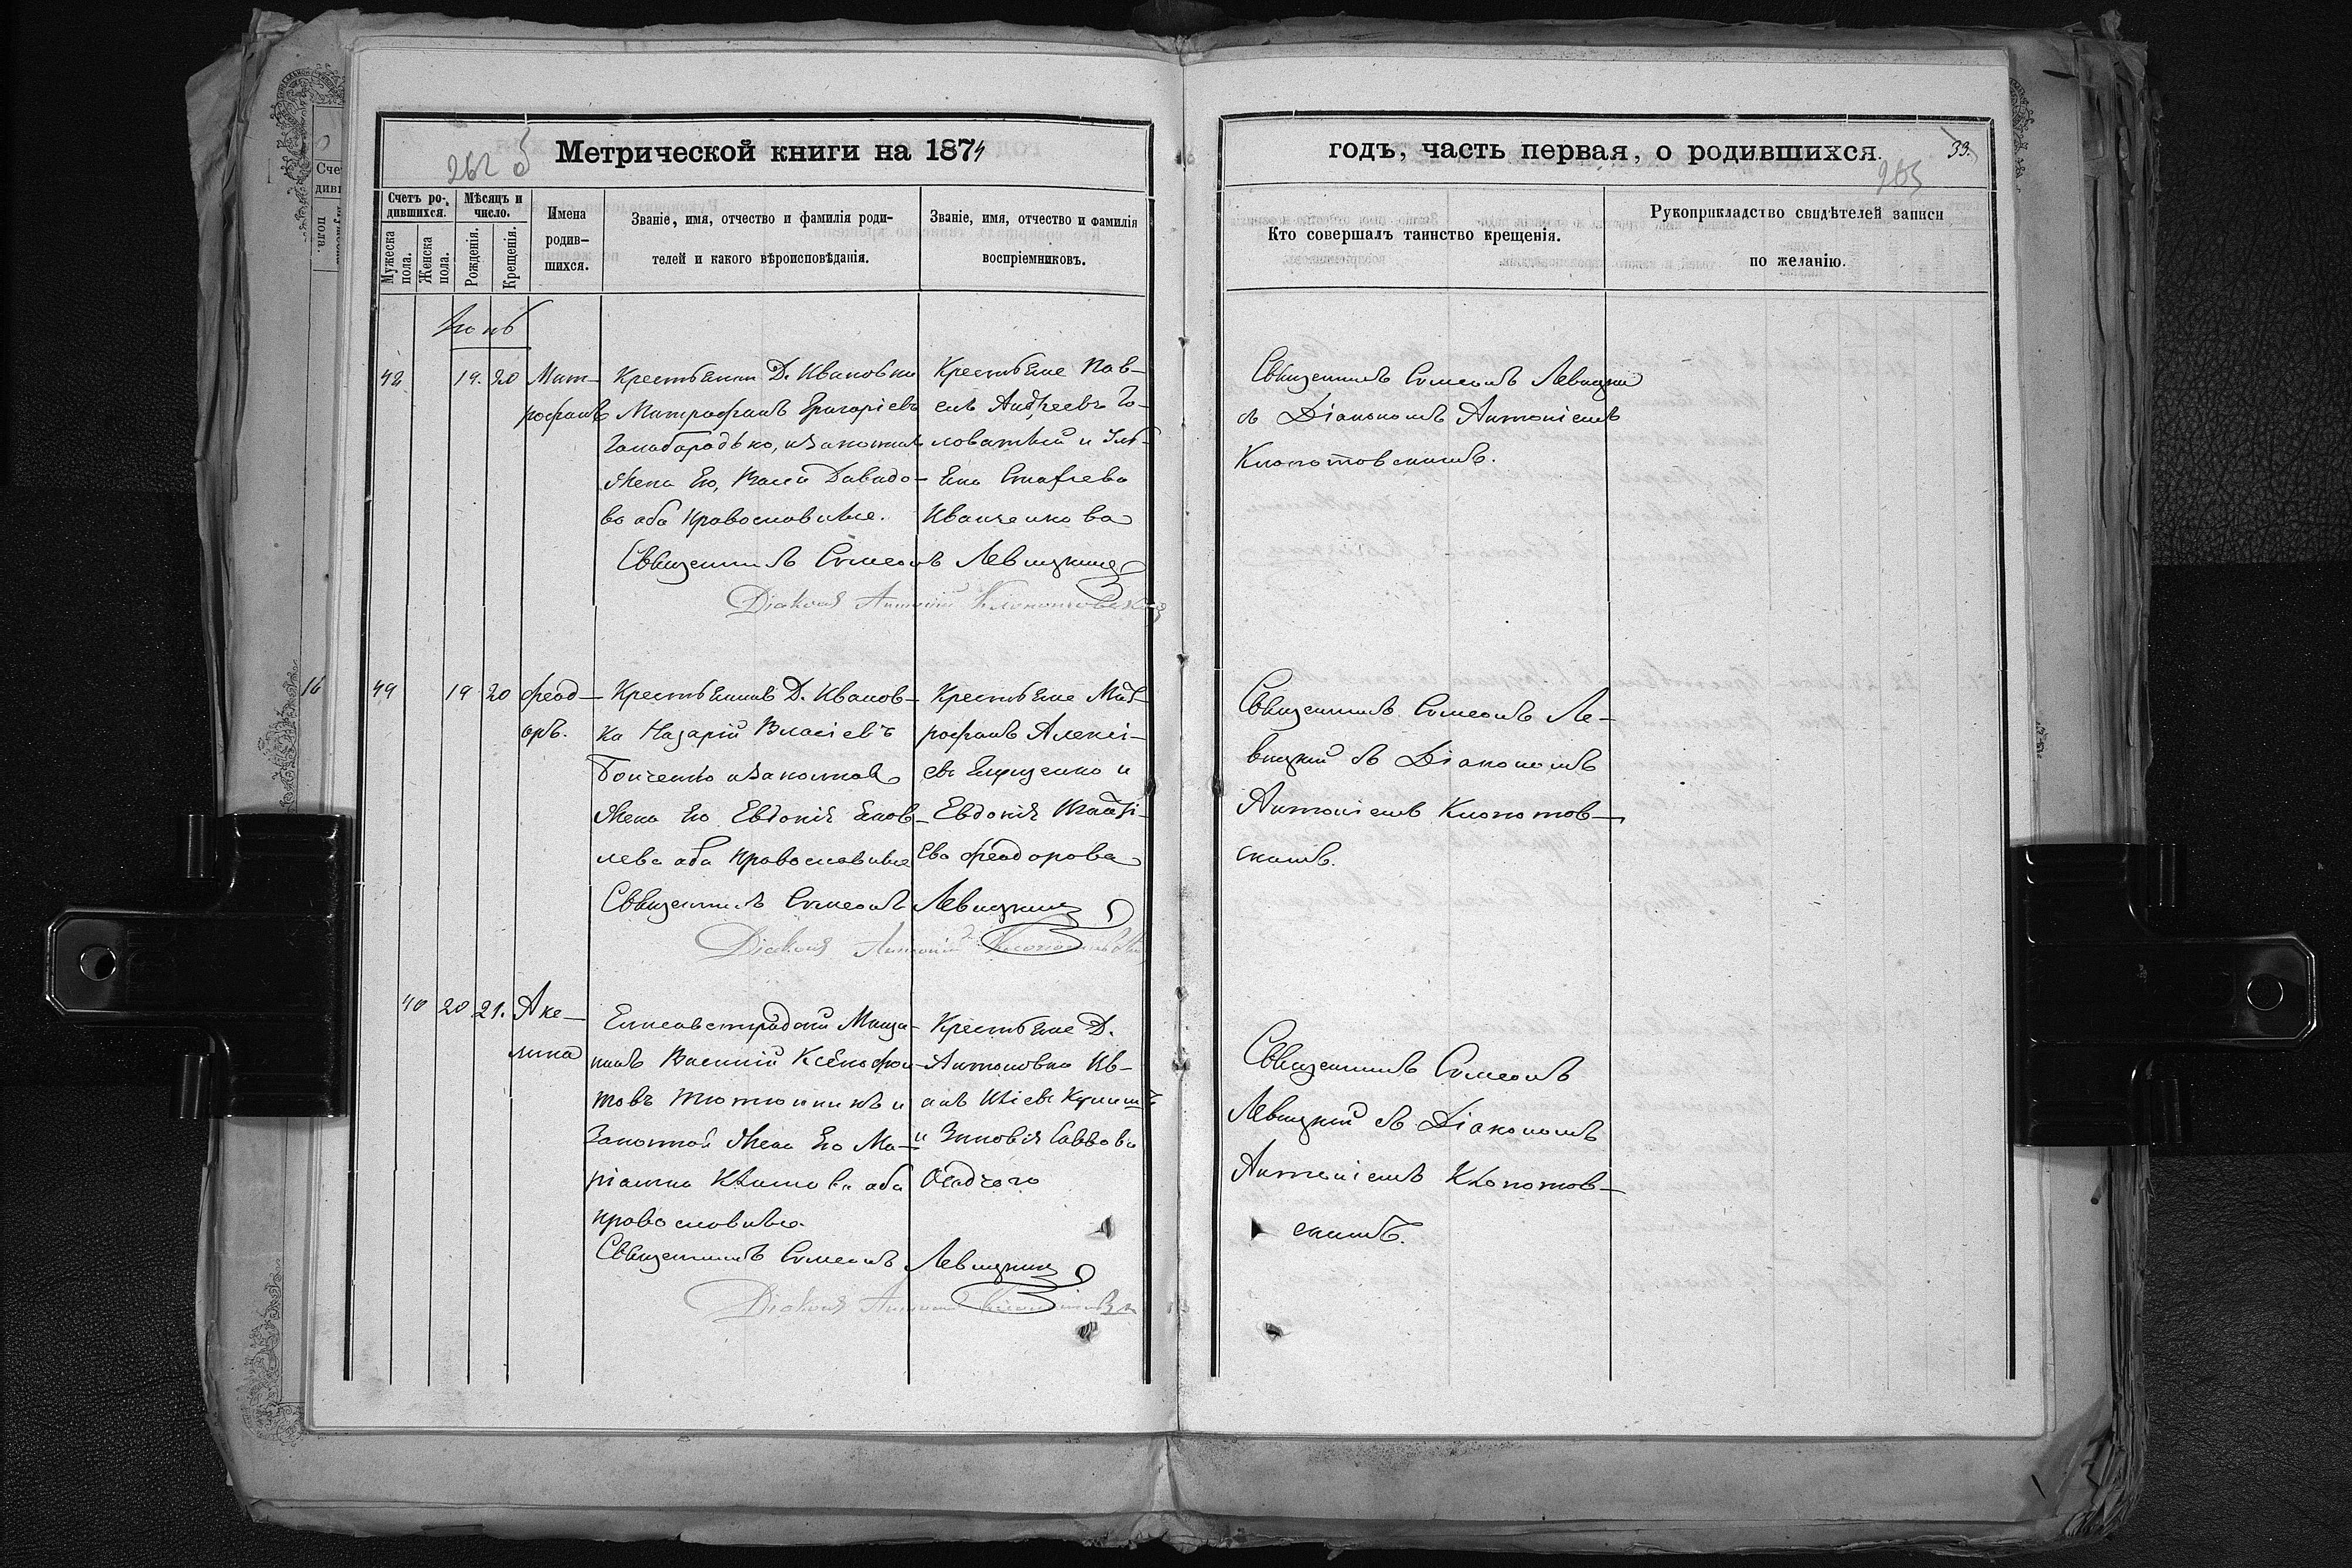 Метрической книги на 1874
262
Счетъ ро-
дившихся.
Мѣсяцъ и
число.
Мужеска
пола.
Женска
пола.
Рожденія.
Крещенія.
Имена
родив-
шихся.
Званіе, имя, отчество и фамилія роди-
телей и какого вѣроисповѣданія.
Званіе, имя, отчество и фамилія
воспріемниковъ.
42 19. 20 Мит-
рофанъ
Крестьянин Д. Ивановки
Митрофанъ Григоріевъ
законная
Жена Его, Давидо-
ва оба Православные.
Крестьяне Пав-
елъ Андреевъ Го-
ловатый и Уль-
Иванченкова
Священникъ Симеонъ Левицкий
Діаконъ Антоній Клопотовскій
16
19 20 Феод-
оръ.
Крестьянинъ Д. Иванов-
ка Назарій Власіевъ
Бойченко и законная
Жена Его Евдокія Яков-
лева оба Православные
Крестьяне Мит-
рофанъ Алексі-
евъ и
Евдокія
ева Феодорова
Священникъ Симеонъ Левицкий
Діаконъ Антоній Клопотовскій
40 20 21. Аке-
лина
Елисаветградскій Меща-
нинъ Василій Ксенофон-
товъ Тютюнникъ и
Законная Жена Его Ма-
ріанна оба
православные.
Крестьяне Д.
Антоновки Ив-
анъ
и Зиновія Саввова
Осадчаго
Священникъ Симеонъ Левицкий
Діаконъ Антоній Клопотовскій
годъ, часть первая, о родившихся.
33.
263
Кто совершалъ таинство крещенія.
Рукоприкладство свидѣтелей записи
по желанію.
Священникъ Симеонъ Левицкий
съ Діакономъ Антоніемъ
Клопотовскимъ.
Священникъ Симеонъ Ле-
вицкий съ Діакономъ
Антоніемъ Клопотов-
скимъ.
Священникъ Симеонъ
Левицкий съ Діакономъ
Антоніемъ Клопотов-
скимъ.